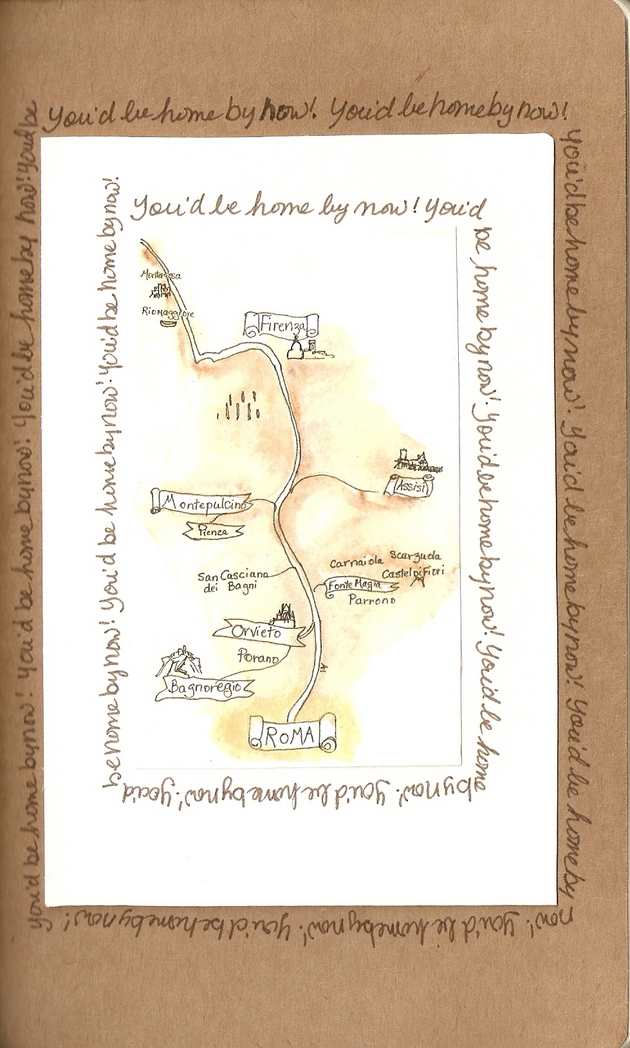 You'd be home by now! You'd be home by now!
You'd be home by now! You'd be home by now! You'd be home by
now! You'd be home by now! You'd be home by now!
You'd be home by now! You'd be home by now! You'd be home by now! You'd be
You'd be home by now! You'd
be home by now! You'd be home by now! You'd be home
by now! You'd be home by now! You'd
be home by now! You'd be home by now! You'd be home by now!
Riomaggiore
Firenza
Assisi
Montepulcino
Pienza
San Casciana
dei Bagni
Carnaiola
Scarzuda
Castel di Fiori
Fonte Magria
Parrono
Orvieto
Porano
Bagnoregio
ROMA